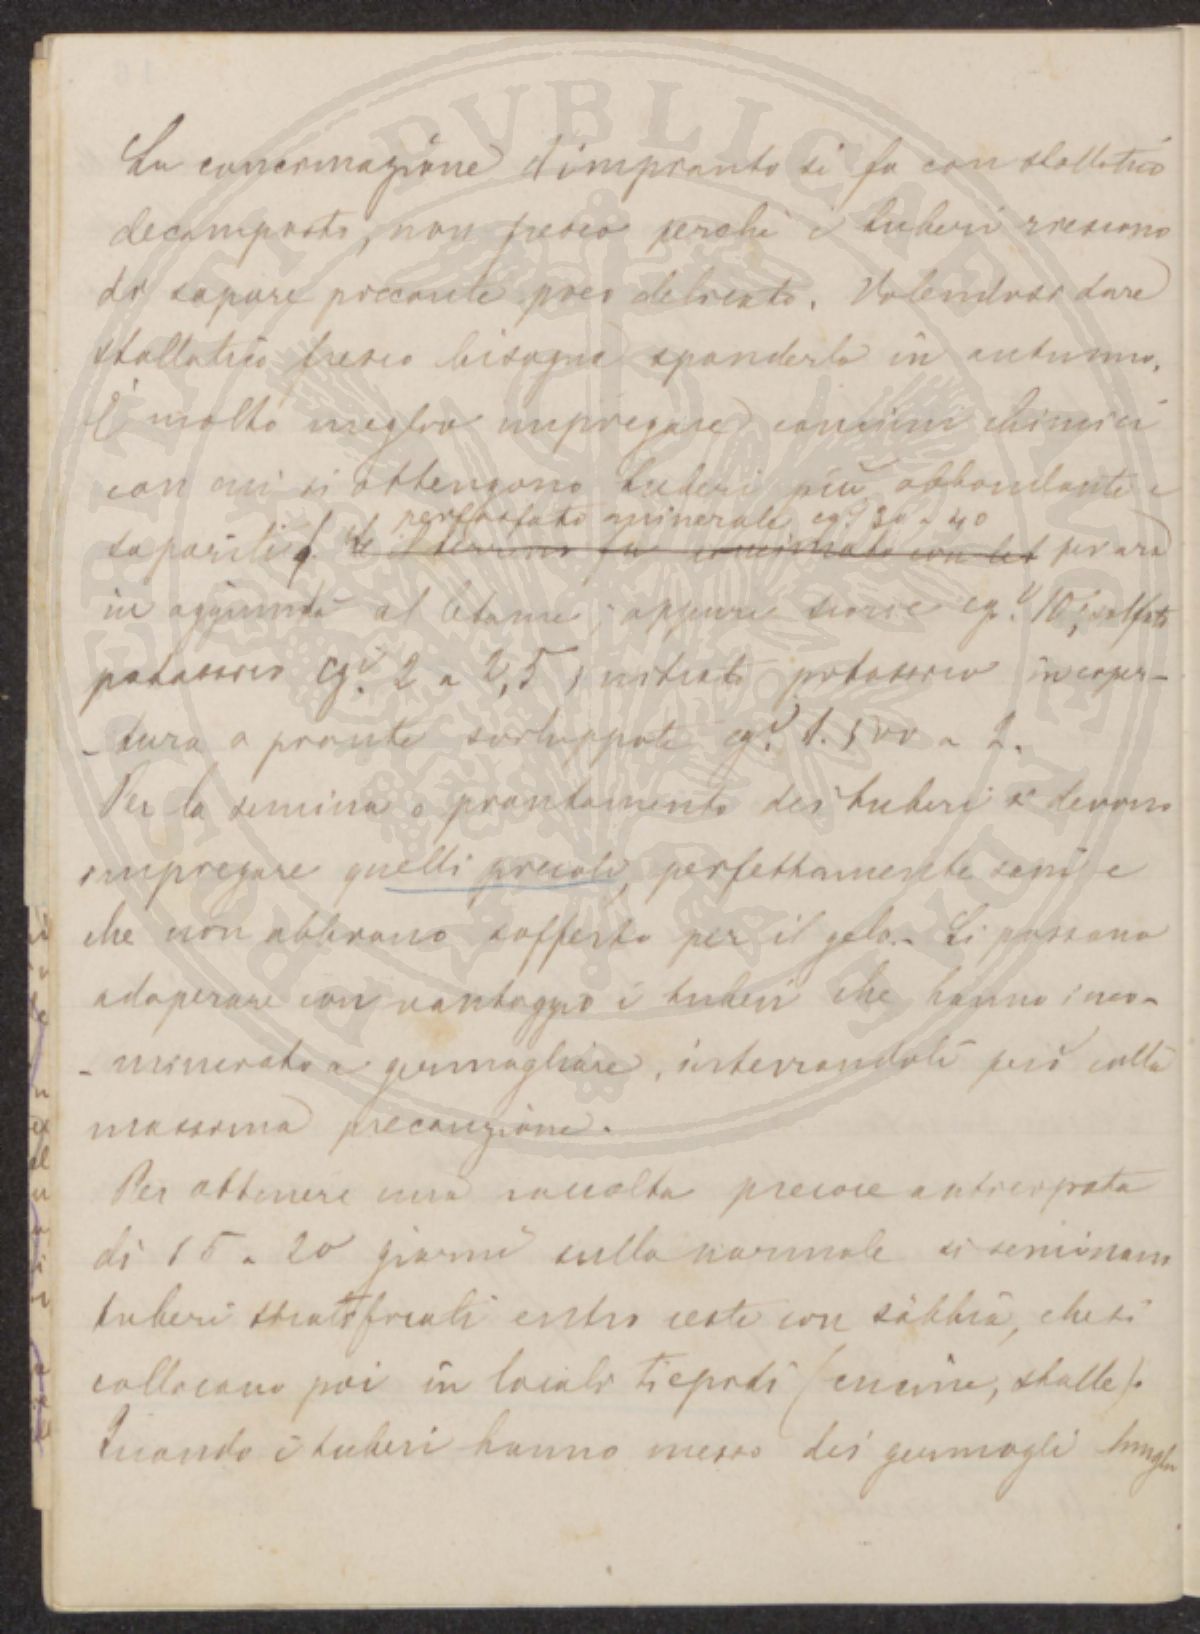 La concimazione d'impianto si fa con stallatico
decomposto, non fresco perchè i tuberi riescono
di sapore piccante poco delicato. Volendosi dare
stallatico fresco bisogna spanderlo in autunno.
È molto meglio impiegare concimi chimici
con cui si ottengono tuberi più abbondanti e
perfosfato minerale cg.i 30 a 40
saporiti. Se il terreno fu concimato con let per ara
in aggiunta al letame; oppure scorie cg.i 10; solfato
potassico cg.i 2 a 2,5; nitrato potassico in coper-
-tura a piante sviluppate cg.i 1.500 a 2.
Per la semina o piantamento dei tuberi si devono
impiegare quelli piccoli, perfettamente sani e
che non abbiano sofferto per il gelo. - Si possono
adoperare con vantaggio i tuberi che hanno inco-
-minciato a germogliare, interrandoli però colla
massima precauzione.
Per ottenere una raccolta precoce anticipata
di 15 a 20 giorni sulla normale si seminano
tuberi stratificati entro ceste con sabbia, che si
collocano poi in locali tiepidi (cucine, stalle).
Quando i tuberi hanno messo dei germogli lunghi
PVBLICAE